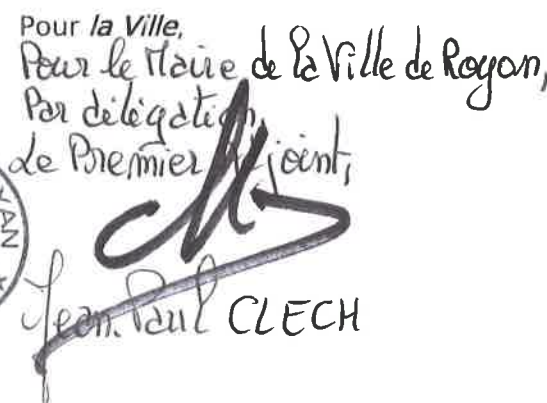 Pour la Ville,
Pour le Maire de la Ville de Royan,
Par délégation,
Le Premier Adjoint,
YAN
Jean-Paul CLECH